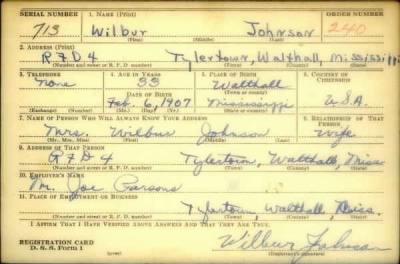 SERIAL NUMBER 1. NAME (Print) ORDER NUMBER
713 Wilbur Johnson 240
(First) (Middle) (Last)
2. ADDRESS (Print)
RFD 4 Tylertown, Walthall, Mississippi
(Number and street or R. F. D. number) (Town) (County) (State)
3. TELEPHONE 4. AGE IN YEARS 5. PLACE OF BIRTH 6. COUNTRY OF CITIZENSHIP
None 33 Walthall
DATE OF BIRTH (Town or county)
Feb. 6, 1907 Mississippi U.S.A.
(Exchange) (Number) (Mo.) (Day) (Yr.) (State or country)
7. NAME OF PERSON WHO WILL ALWAYS KNOW YOUR ADDRESS 8. RELATIONSHIP OF THAT PERSON
Mrs. Wilbur Johnson Wife
(Mr., Mrs., Miss) (First) (Middle) (Last)
9. ADDRESS OF THAT PERSON
RFD 4 Tylertown, Walthall, Miss
(Number and street or R. F. D. number) (Town) (County) (State)
10. EMPLOYER'S NAME
Mr. Joe Parsons
11. PLACE OF EMPLOYMENT OR BUSINESS
Tylertown, Walthall, Miss.
(Number and street or R. F. D. number) (Town) (County) (State)
I AFFIRM THAT I HAVE VERIFIED ABOVE ANSWERS AND THAT THEY ARE TRUE.
REGISTRATION CARD Wilbur Johnson
D. S. S. Form 1 (over) (Signature)